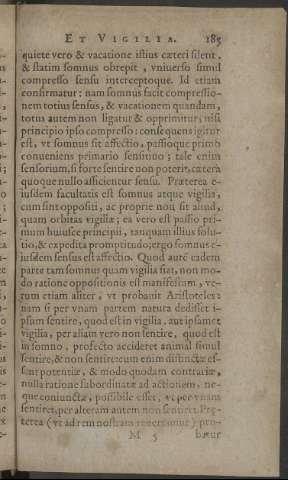 ET VIGILIA. 185
quiete vero & vacatione istius cæteri silent,
& statim somnus obrepit, vniverso simul
compresso sensu interceptoque. Id etiam
confirmatur: nam somnus facit compressio-
nem totius sensus, & vacationem quandam,
totus autem non ligatur & opprimitur, nisi
principio ipso compresso: consequens igitur
est, vt somnus sit affectio, passioque primo
conveniens primario sensitivo; tale enim
sensorium, si forte sentire non poterit, cætera
quoque nullo afficientur sensu. Præterea e-
iusdem facultatis est somnus atque vigilia,
cum sint oppositi, ac proprie non sit aliud,
quam orbitas vigiliæ; ea vero est passio pri-
mum huiusce principii, tanquam illius solu-
tio, & expedita promptitudo; ergo somnus e-
iusdem sensus est affectio. Quod autē eadem
parte tam somnus quam vigilia fiat, non mo-
do ratione oppositionis est manifestum, ve-
rum etiam aliter, vt probavit Aristoteles:
nam si per vnam partem natura dedisset i-
psum sentire, quod est in vigilia, aut ipsamet
vigilia, per aliam vero non sentire, quod est
in somno, profecto accideret animal simul
sentire, & non sentire: cum enim distinctæ es-
sent potentiæ, & modo quodam contrariæ,
nulla ratione subordinatæ ad actionem, ne-
que coniunctæ, possibile esset, vt per vnam
sentiret, per alteram autem non sentiret. Præ-
terea (vt ad rem nostram revertamur) pro-
M 5 batur